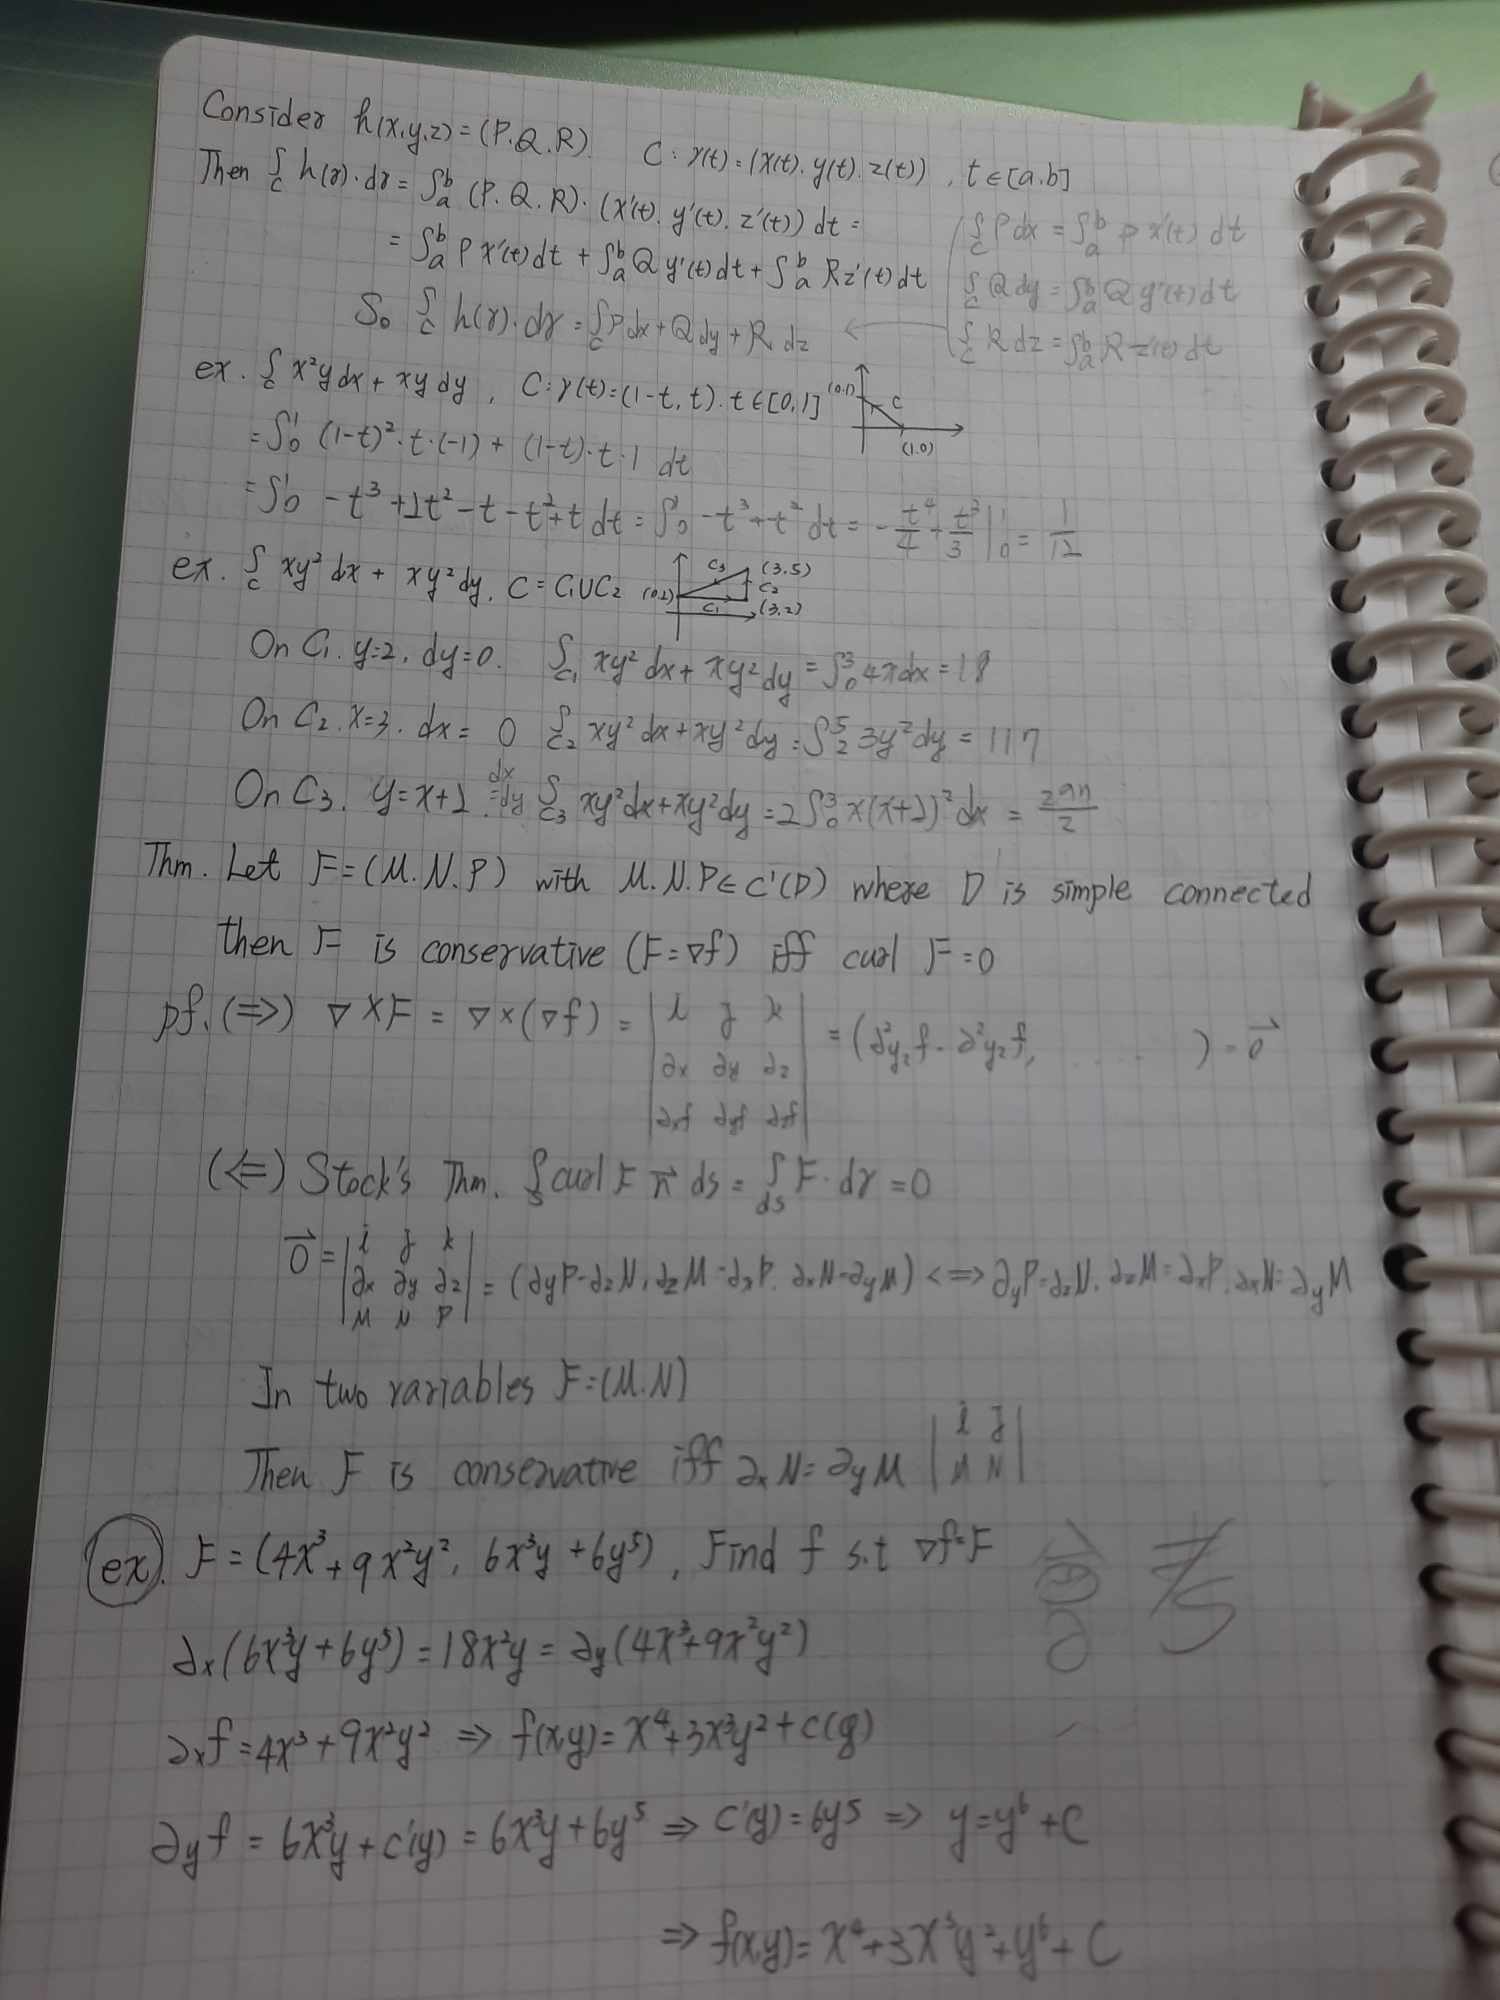 Consider h(x,y,z)=(P.Q.R). C: r(t)=(x(t).y(t).z(t)), t∈[a.b]
Then ∫_C h(r)·dr = ∫_a^b (P.Q.R)·(x'(t).y'(t).z'(t))dt =
= ∫_a^b P x'(t)dt + ∫_a^b Q y'(t)dt + ∫_a^b R z'(t)dt
∫_C P dx = ∫_a^b P x'(t) dt
∫_C Q dy = ∫_a^b Q y'(t) dt
∫_C R dz = ∫_a^b R z'(t) dt
So ∫_C h(r)·dr = ∫_C P dx + Q dy + R dz ←
ex. ∫_C x²y dx + xy dy, C: r(t)=(1-t, t). t∈[0,1]
(0.1) C (1.0)
= ∫_0^1 (1-t)²·t·(-1) + (1-t)·t·1 dt
= ∫_0^1 -t³+2t²-t-t²+t dt = ∫_0^1 -t³+t² dt = -t⁴/4 + t³/3 |_0^1 = 1/12
ex. ∫_C xy² dx + xy² dy, C=C₁∪C₂
(0.2) C₃ (3.5) C₂ C₁ (3.2)
On C₁. y=2, dy=0. ∫_C₁ xy² dx + xy² dy = ∫_0^3 4x dx = 18
On C₂. x=3. dx = 0 ∫_C₂ xy² dx + xy² dy = ∫_2^5 3y² dy = 117
On C₃. y=x+2. dx=dy ∫_C₃ xy² dx + xy² dy = 2∫_0^3 x(x+2)² dx = /2
Thm. Let F=(M.N.P) with M.N.P∈C'(D) where D is simple connected
then F is conservative (F=∇f) iff curl F=0
pf. (⇒) ∇×F = ∇×(∇f) = | i j k | = (∂²yz f - ∂²yz f, ...... ) = 0⃗
∂x ∂y ∂z
∂xf ∂yf ∂zf
(⇐) Stock's Thm. ∫_S curl F n⃗ ds = ∫_ds F·dr = 0
0⃗ = | i j k |
| ∂x ∂y ∂z | = (∂yP-∂zN, ∂zM-∂xP. ∂xN-∂yM) <=> ∂yP=∂zN. ∂zM=∂xP. ∂xN=∂yM
| M N P |
In two variables F=(M.N)
Then F is conservative iff ∂xN=∂yM | i j |
| M N |
ex. F=(4x³+9x²y², 6x³y+6y⁵), Find f s.t ∇f=F
∂x(6x³y+6y⁵)=18x²y=∂y(4x³+9x²y²)
∂xf=4x³+9x²y² ⇒ f(x,y)=x⁴+3x³y²+c(y)
∂yf = 6x³y+c'(y) = 6x³y+6y⁵ ⇒ c'(y)=6y⁵ ⇒ y=y⁶+C
⇒ f(x,y)=x⁴+3x³y²+y⁶+C